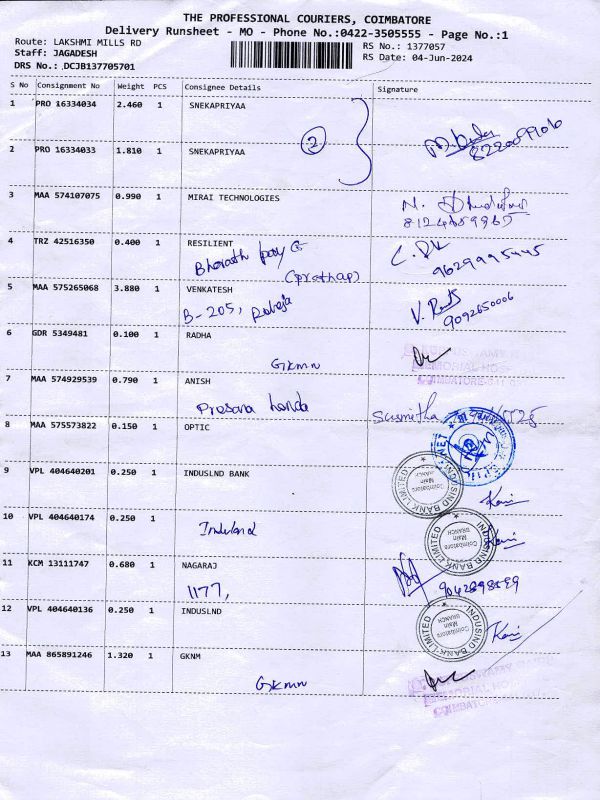 THE PROFESSIONAL COURIERS, COIMBATORE
Delivery Runsheet - MO - Phone No.:0422-3505555 - Page No.:1
Route: LAKSHMI MILLS RD
Staff: JAGADESH
DRS No.: DCJB137705701
RS No.: 1377057
RS Date: 04-Jun-2024
S No Consignment No Weight PCS Consignee Details Signature
1 PRO 16334034 2.460 1 SNEKAPRIYAA
2
2 PRO 16334033 1.810 1 SNEKAPRIYAA
3 MAA 574107075 0.990 1 MIRAI TECHNOLOGIES
4 TRZ 42516350 0.400 1 RESILIENT
Bharath
(prathap)
9629995445
5 MAA 575265068 3.880 1 VENKATESH
B-205, Raheja
9092650006
6 GDR 5349481 0.100 1 RADHA
Gkmn
7 MAA 574929539 0.790 1 ANISH
honda
Susmitha
8 MAA 575573822 0.150 1 OPTIC
9 VPL 404640201 0.250 1 INDUSLND BANK
INDUSIND BANK LIMITED
Coimbatore
Main
BRANCH
10 VPL 404640174 0.250 1
Indusland
INDUSIND BANK LIMITED
Coimbatore
Main
BRANCH
11 KCM 13111747 0.680 1 NAGARAJ
1177,
12 VPL 404640136 0.250 1 INDUSLND
INDUSIND BANK LIMITED
Coimbatore
Main
BRANCH
13 MAA 865891246 1.320 1 GKNM
Gkmn